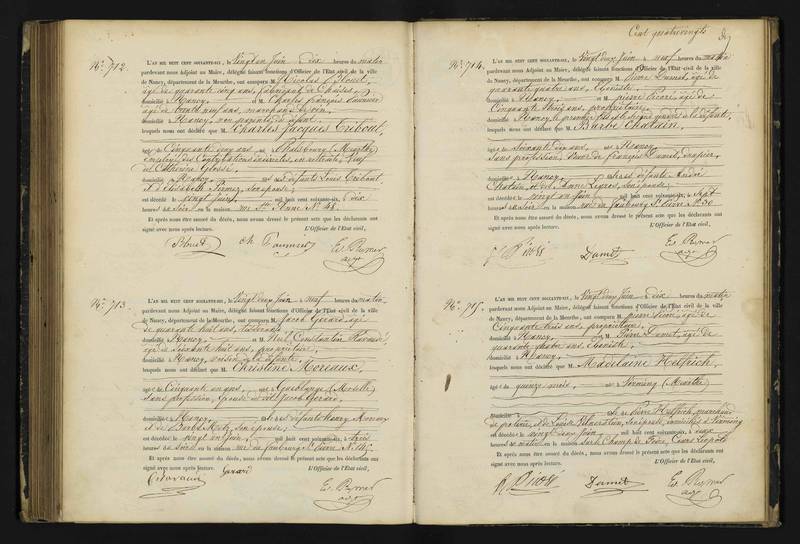 Cent quatrevingts
No. 712.
L'AN MIL HUIT CENT SOIXANTE-SIX, le Vingt un Juin dix heures du matin
pardevant nous Adjoint au Maire, délégué faisant fonctions d'Officier de l'Etat civil de la ville
de Nancy, département de la Meurthe, ont comparu M. Nicolas Blouet,
âgé de quarante cinq ans, fabricant de Chaises,
domicilié à Nancy, et M. Charles François
âgé de trente neuf ans, marchand de vin,
domicilié à Nancy, non parents du défunt,
lesquels nous ont déclaré que M. Charles Jacques Cribout,
âgé de Cinquante deux ans, né à Phalsbourg (Meurthe)
employé des Contributions indirectes, en retraite, Veuf
de Catherine
domicilié à Nancy, fils des défunts Louis Cribout,
et d'Elisabeth son épouse;
est décédé le vingt Juin, mil huit cent soixante-six, à dix
heures du Soir en sa maison rue Ste Anne No. 48.
Et après nous être assuré du décès, nous avons dressé le présent acte que les déclarants ont
signé avec nous après lecture. L'Officier de l'Etat civil,
Blouet
No. 713
L'AN MIL HUIT CENT SOIXANTE-SIX, le Vingt deux Juin neuf heures du matin,
pardevant nous Adjoint au Maire, délégué faisant fonctions d'Officier de l'Etat civil de la ville
de Nancy, département de la Meurthe, ont comparu M. Jacob Gérard, âgé
de quarante huit ans, tisserand,
domicilié à Nancy, et M. Noël Constantin
âgé de soixante huit ans, propriétaire,
domicilié à Nancy, voisin de la défunte,
lesquels nous ont déclaré que M. Christine Moreaux,
âgée de Cinquante un ans, née à (Moselle)
sans profession, épouse du dit Jacob Gérard,
domiciliée à Nancy, fille des défunts Henry Moreaux
et de Barbe Metz son épouse;
est décédée le vingt un Juin, mil huit cent soixante-six, à trois
heures du Soir en sa maison rue du faubourg St. Pierre No.
Et après nous être assuré du décès, nous avons dressé le présent acte que les déclarants ont
signé avec nous après lecture. L'Officier de l'Etat civil,
Gérard
No. 714.
L'AN MIL HUIT CENT SOIXANTE-SIX, le Vingt deux Juin neuf heures du matin
pardevant nous Adjoint au Maire, délégué faisant fonctions d'Officier de l'Etat civil de la ville
de Nancy, département de la Meurthe, ont comparu M. Pierre Damet, âgé de
quarante quatre ans, Ebéniste,
domicilié à Nancy, et M. pierre Pierre, âgé de
Cinquante trois ans, propriétaire,
domicilié à Nancy, le premier fils et le second gendre de la défunte,
lesquels nous ont déclaré que M. Barbe Chatain,
âgée de Soixante dix ans, née à Nancy,
sans profession, Veuve de François Damet,
domiciliée à Nancy, fille des défunts André
Chatain et de Anne son épouse;
est décédée le vingt un Juin, mil huit cent soixante-six, à Sept
heures du Soir en sa maison rue du faubourg St. Pierre No. 30
Et après nous être assuré du décès, nous avons dressé le présent acte que les déclarants ont
signé avec nous après lecture. L'Officier de l'Etat civil,
Damet
No. 715.
L'AN MIL HUIT CENT SOIXANTE-SIX, le Vingt deux Juin dix heures du matin
pardevant nous Adjoint au Maire, délégué faisant fonctions d'Officier de l'Etat civil de la ville
de Nancy, département de la Meurthe, ont comparu M. pierre Pierre, âgé de
Cinquante trois ans, propriétaire,
domicilié à Nancy, et M. Pierre Damet, âgé de
quarante quatre ans, Ebéniste,
domicilié à Nancy,
lesquels nous ont déclaré que M. Madelaine Helfrich,
âgée de quinze mois, née à (Meurthe)
domiciliée à fille de pierre Helfrich, marchand
de et de son épouse, domiciliés à
est décédée le vingt deux Juin, mil huit cent soixante-six, à deux
heures du matin en sa maison sur le Champ de Foire, Cours Léopold
Et après nous être assuré du décès, nous avons dressé le présent acte que les déclarants ont
signé avec nous après lecture. L'Officier de l'Etat civil,
Damet